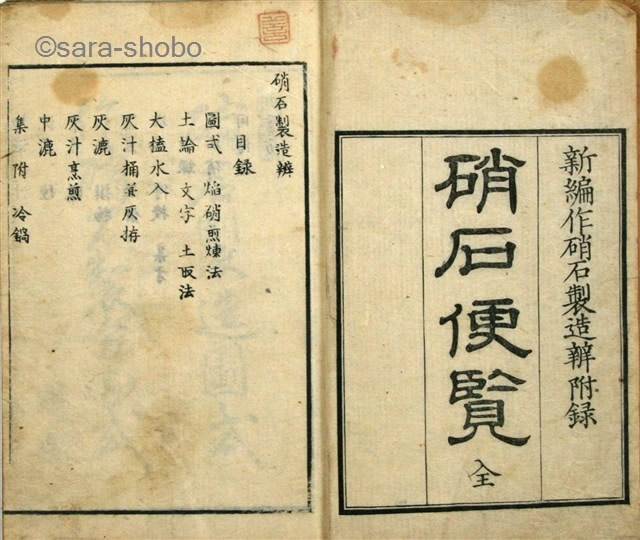 新編作硝石製造辨附録
硝石便覧
全
硝石製造辨
目録
圖式 焰硝煎煉法
土論文字 土取法
大𣖾水入
灰汁桶並灰拵
灰漉
灰汁烹煎
中漉
集 附 冷鍋
©sara-shobo